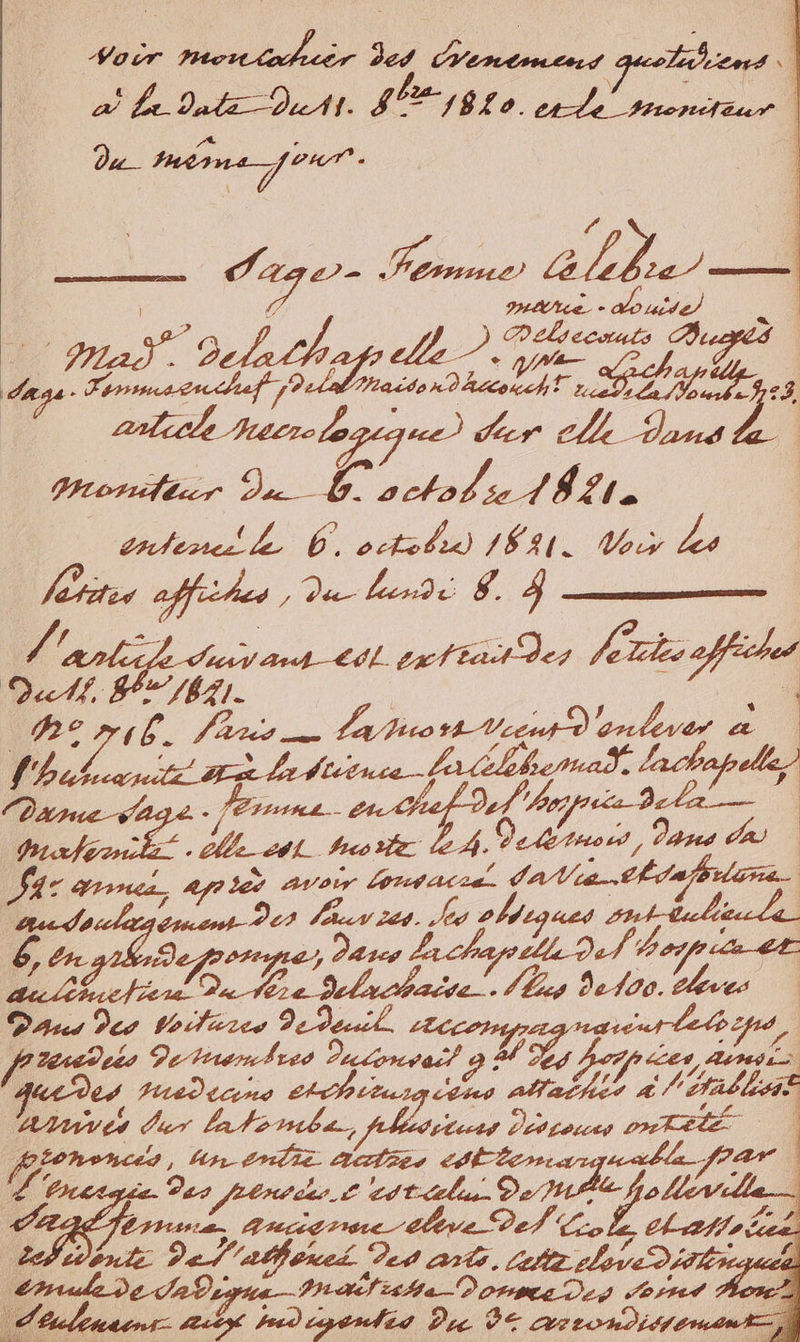 Voir mon cahier des Evenemens quotidiens
a la Date Du 11. 8bre 1820. et le moniteur
Du même jour.
Sage-Femme Célebre
marie-Louise
Mad. Delachapelle Dugès
Vve Lachapelle
Sage-Femme en chef De la Maison D'accoucht rue de la Bourbe No 3.
article necrologique sur elle dans la
moniteur Du 6. octobre 1821.
enterrée le 6. octobre 1821. Voir les
petites affiches, Du lundi 8.
l'article suivant est extrait Des petites affiches
Du 11. 8bre 1821.
No 716. Paris — la mort Vient D'enlever à
l'humanité et à la Science la Célebre mad. lachapelle,
Dame Sage-femme en chef De l'hospice De la
maternité. elle est morte le 4. De ce mois, Dans sa
52e année, après avoir consacré sa Vie et sa fortune
au soulagement Des pauvres. Ses obsèques ont eu lieu le
6, en grande pompe, Dans la chapelle De l'hospice et
au Cimetière Du Père Delachaise. Plus De 100. élèves
Dans Des Voitures De Deuil accompagnaient le Corps,
précédées De membres Du Conseil gal Des hospices, ainsi
que Des médecins et chirurgiens attachés à l'établisst
arrivés sur la tombe, plusieurs Discours ont été
prononcés, un entre autres est remarquable par
l'énergie Des pensées. C'est celui De Mlle holleville
Sage femme ancienne élève De l'école, et associée
résidente De l'athénée Des arts. Cette élève Distinguée
émule De sa Digne Maitresse Donne Des soins non
seulement aux indigentes Du 3e arrondissement,